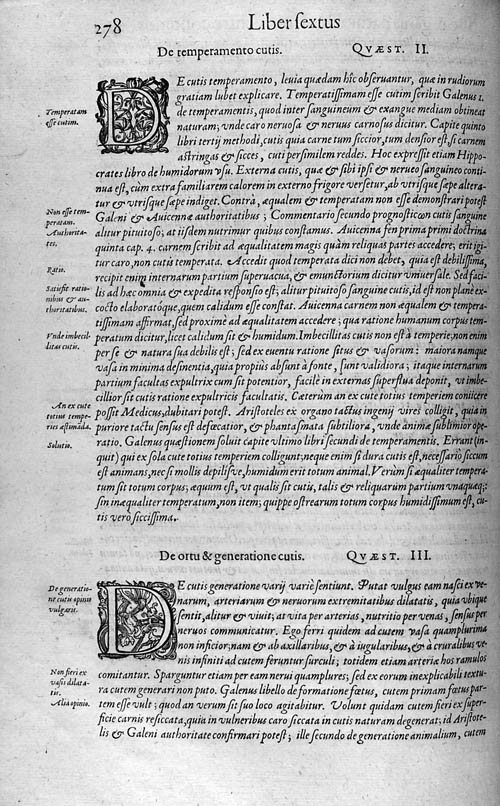 278
Liber sextus
De temperamento cutis. QVÆST. II.
Temperatam
esse cutim.
DE cutis temperamento, leuia quædam hîc obseruantur, quæ in rudiorum
gratiam lubet explicare. Temperatissimam esse cutim scribit Galenus 1.
de temperamentis, quod inter sanguineum & exangue mediam obtineat
naturam; vnde caro neruosa & neruus carnosus dicitur. Capite quinto
libri tertij methodi, cutis quia carne tum siccior, tum densior est, si carnem
astringas & sicces, cuti persimilem reddes. Hoc expressit etiam Hippo-
crates libro de humidorum vsu. Externa cutis, quæ & sibi ipsi & nerueo sanguineo conti-
nua est, cùm extra familiarem calorem in externo frigore versetur, ab vtrisque sæpe altera-
tur & vtrisque sæpe indiget. Contrà, æqualem & temperatam non esse demonstrari potest
Non esse tem-
peratam.
Authorita-
tes.
Galeni & Auicennæ authoritatibus; Commentario secundo prognosticωn cutis sanguine
alitur pituitoso; at iisdem nutrimur quibus constamus. Auicenna fen prima primi doctrina
quinta cap. 4. carnem scribit ad æqualitatem magis quàm reliquas partes accedere, erit igi-
tur caro, non cutis temperata. Accedit quod temperata dici non debet, quia est debilissima,
Ratio.
recipit enim internarum partium superuacua, & emunctorium dicitur vniuersale. Sed faci-
Satisfit ratio-
nibus & au-
thoritatibus.
lis ad hæc omnia & expedita responsio est; alitur pituitoso sanguine cutis, id est non planè ex-
cocto elaboratóque, quem calidum esse constat. Auicenna carnem non æqualem & tempera-
tissimam affirmat, sed proximè ad æqualitatem accedere; qua ratione humanum corpus tem-
Vnde imbecil-
litas cutis.
peratum dicitur, licet calidum sit & humidum. Imbecillitas cutis non est à temperie, non enim
per se & natura sua debilis est; sed ex euentu ratione situs & vasorum: maiora namque
vasa in minima desinentia, quia propiùs absunt à fonte, sunt validiora; itaque internarum
partium facultas expultrix cum sit potentior, facilè in externas superflua deponit, vt imbe-
cillior sit cutis ratione expultricis facultatis. Cæterùm an ex cute totius temperiem coniicere
An ex cute
totius tempe-
ries æstimãda.
possit Medicus, dubitari potest. Aristoteles ex organo tactus ingenij vires colligit, quia in
puriore tactu sensus est defæcatior, & phantasmata subtiliora, vnde animæ sublimior ope-
ratio. Galenus quæstionem soluit capite vltimo libri secundi de temperamentis. Errant (in-
Solutio.
quit) qui ex sola cute totius temperiem colligunt; neque enim si dura cutis est, necessariò siccum
est animans, nec si mollis depilísve, humidum erit totum animal. Verùm si æqualiter tempera-
tum sit totum corpus; æquum est, vt qualis sit cutis, talis & reliquarum partium vnaquæq;:
sin inæqualiter temperatum, non item; quippe ostrearum totum corpus humidissimum est, cu-
tis verò siccissima.
De ortu & generatione cutis. QVÆST. III.
De generatio-
ne cutis opinio
vulgaris.
DE cutis generatione varij variè sentiunt. Putat vulgus eam nasci ex ve-
narum, arteriarum & neruorum extremitatibus dilatatis, quia vbique
sentit, alitur & viuit; at vita per arterias, nutritio per venas, sensus per
neruos communicatur. Ego ferri quidem ad cutem vasa quamplurima
non inficior; nam & ab axillaribus, & à iugularibus, & à cruralibus ve-
nis infiniti ad cutem feruntur surculi; totidem etiam arteriæ hos ramulos
Non fieri ex
vasis dilata-
tis.
comitantur. Sparguntur etiam per eam nerui quamplures; sed ex eorum inexplicabili textu-
ra cutem generari non puto. Galenus libello de formatione fœtus, cutem primam fœtus par-
Alia opinio.
tem esse vult; quod an verum sit suo loco agitabitur. Volunt quidam cutem fieri ex super-
ficie carnis resiccata, quia in vulneribus caro siccata in cutis naturam degenerat; id Aristote-
lis & Galeni authoritate confirmari potest; ille secundo de generatione animalium, cutem